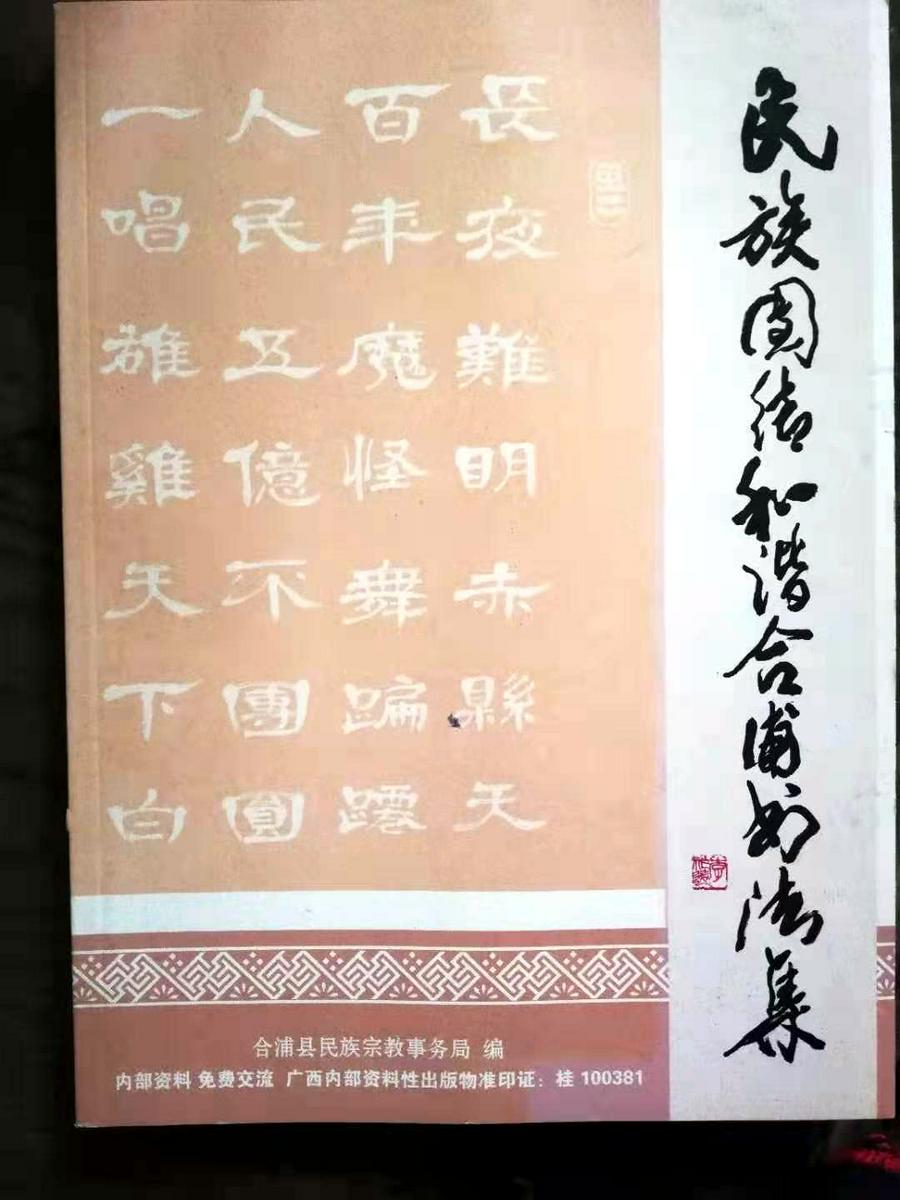 民族團结和谐合浦书法集
長夜難明赤縣天
百年魔怪舞蹁躚
人民五億不團圓
一唱雄雞天下白
合浦县民族宗教事务局 编
内部资料 免费交流 广西内部资料性出版物准印证：桂 100381